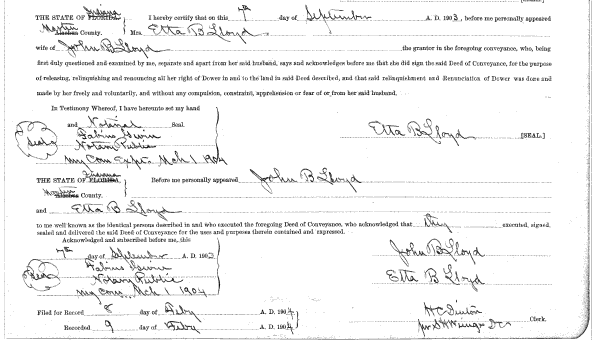 [SEAL]
THE STATE OF FLORIDA, Indiana
I hereby certify that on this 7th day of September A. D. 1903, before me personally appeared
Martin County. Mrs. Etta B Lloyd
wife of John B Lloyd the grantor in the foregoing conveyance, who, being
first duly questioned and examined by me, separate and apart from her said husband, says and acknowledges before me that she did sign the said Deed of Conveyance, for the purpose
of releasing, relinquishing and renouncing all her right of Dower in and to the land in said Deed described, and that said relinquishment and Renunciation of Dower was done
made by her freely and voluntarily, and without any compulsion, constraint, apprehension or fear of or from her said husband.
In Testimony Whereof, I have hereunto set my hand
and Notarial Seal.
Seal
Fabius Gwin
Notary Public
my Com Expr. Mch 1 1904
Etta B Lloyd [SEAL.]
THE STATE OF FLORIDA, Indiana
Martin County.
Before me personally appeared John B Lloyd
and Etta B Lloyd
to me well known as the identical persons described in and who executed the foregoing Deed of Conveyance, who acknowledged that they executed, signed,
sealed and delivered the said Deed of Conveyance for the uses and purposes therein contained and expressed.
Acknowledged and subscribed before me, this
7th day of September A. D. 1903
Seal
Fabius Gwin
Notary Public
my Com Mch 1 1904
John B Lloyd
Etta B Lloyd
Filed for Record 8 day of Feby A. D. 1904
Recorded 9 day of Feby A. D. 1904
Clerk.